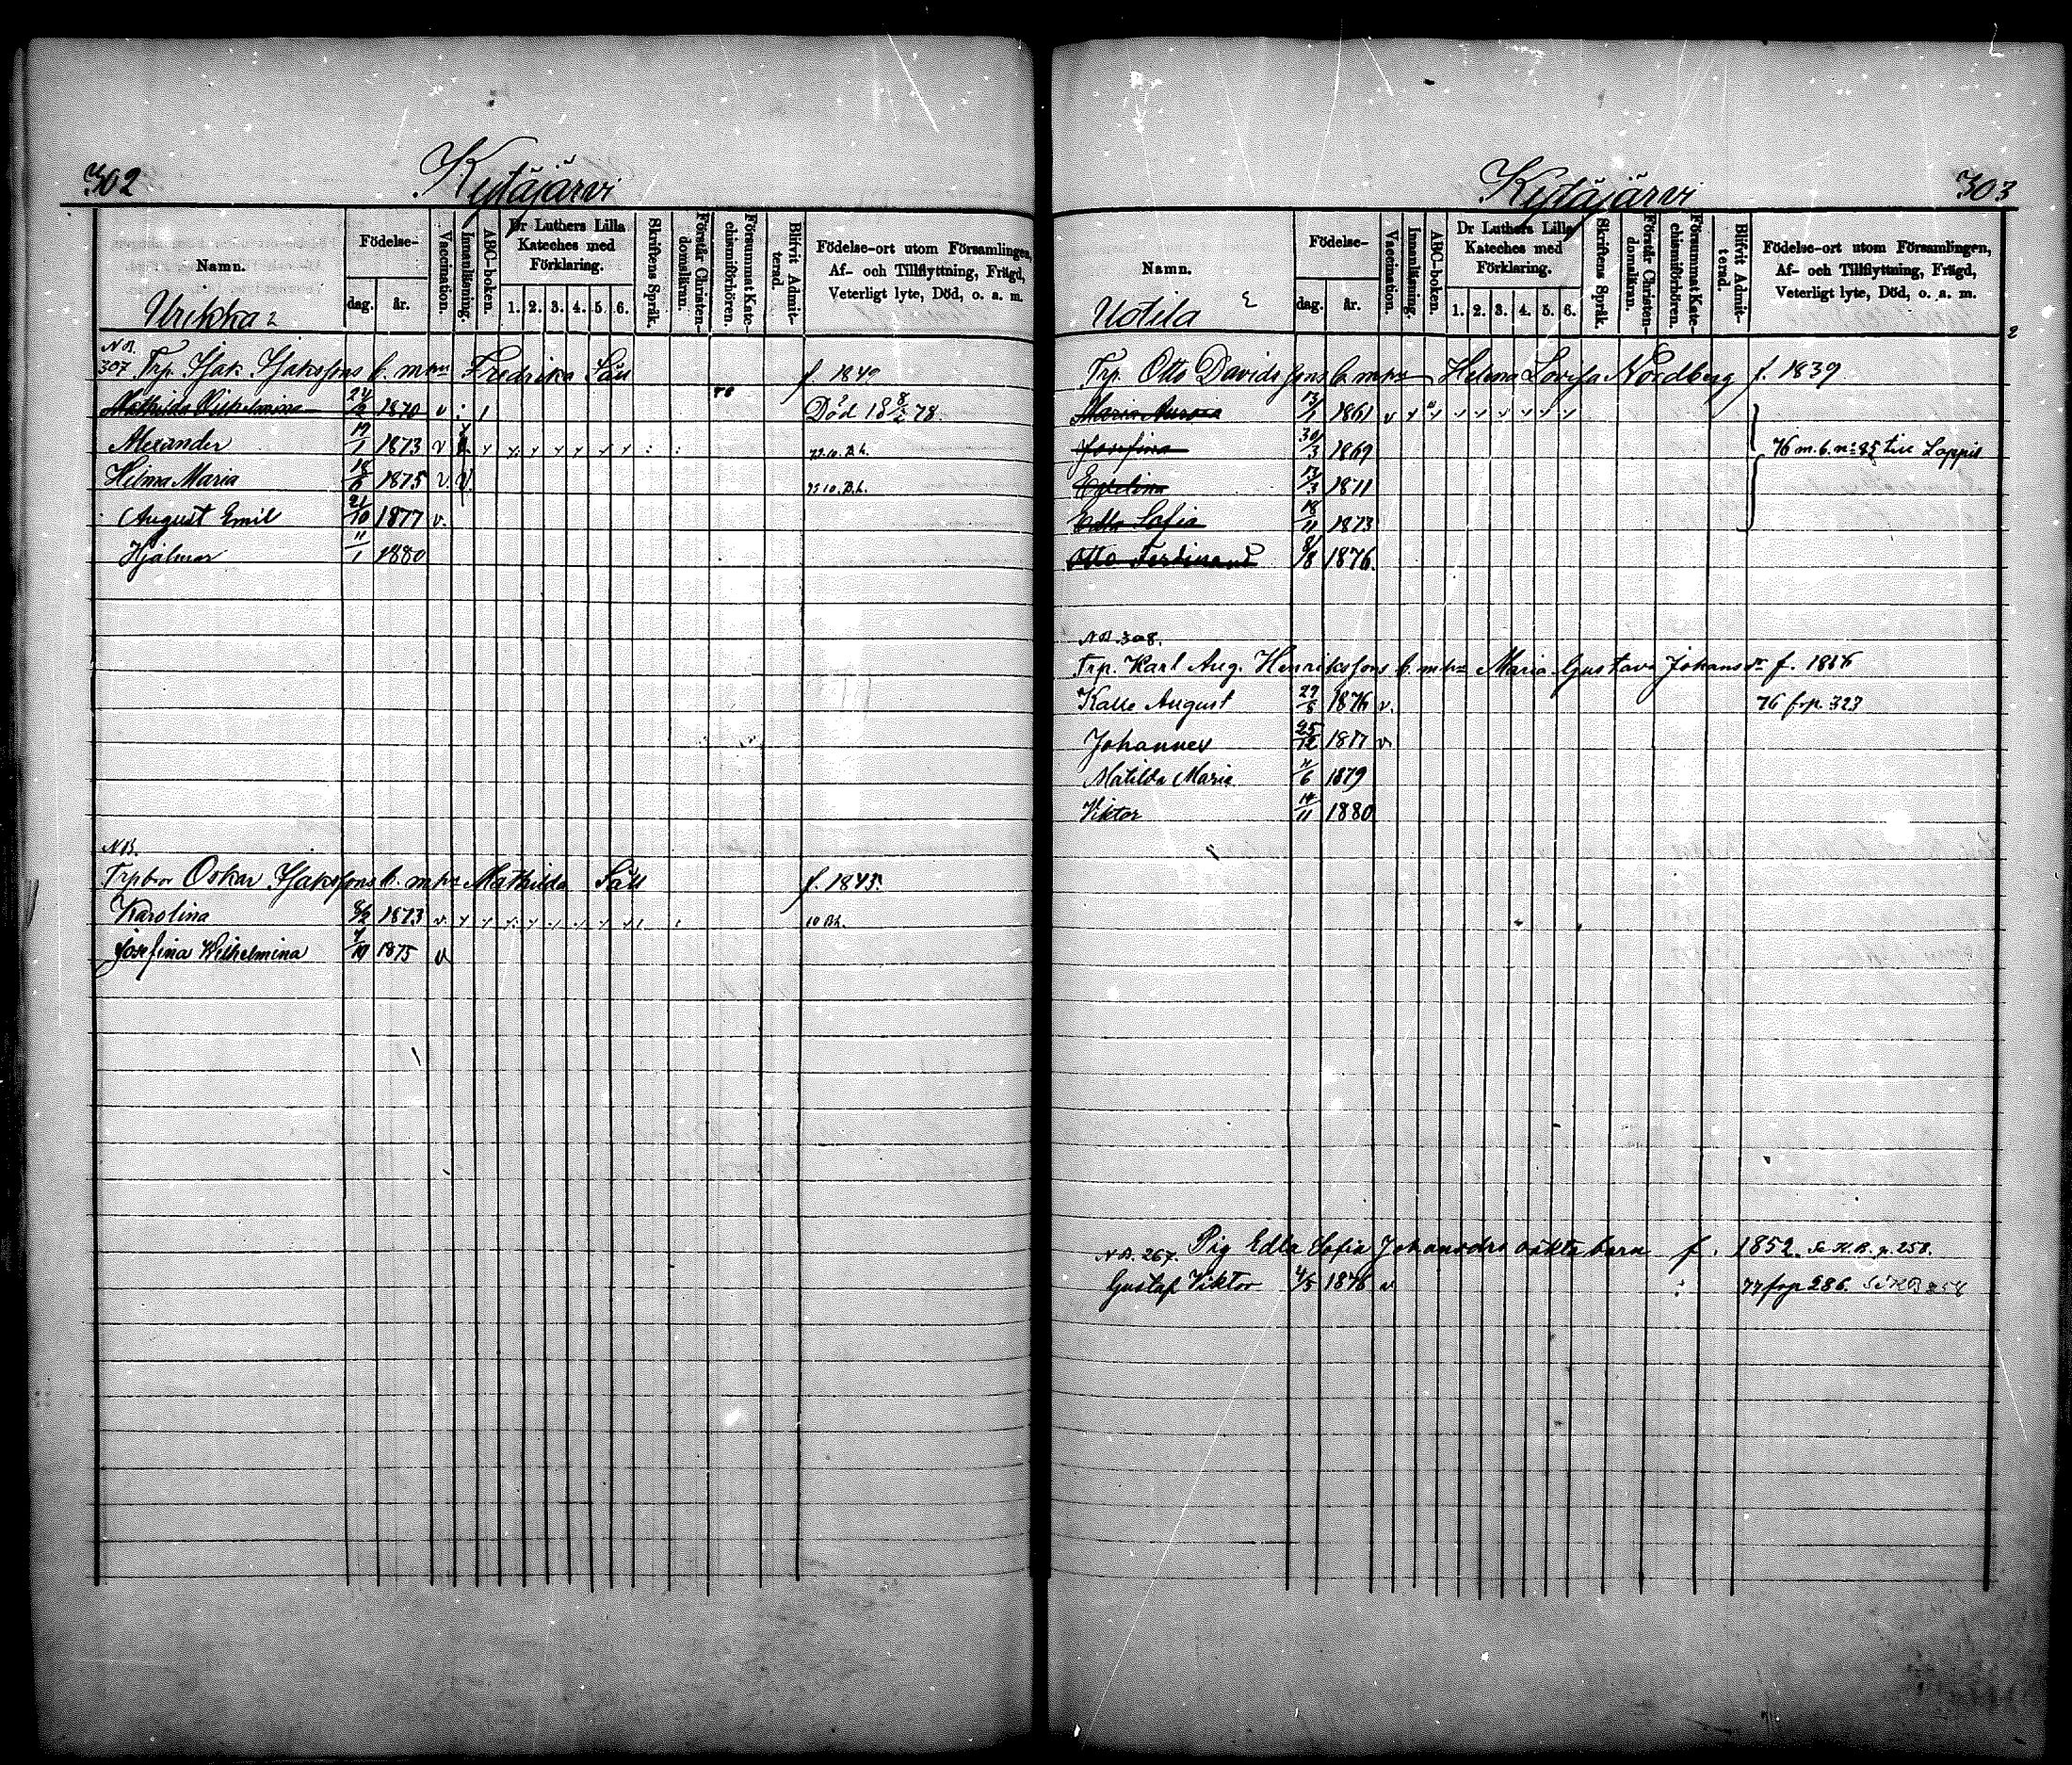 302
Kytäjärvi
Namn.
Födelse-
dag. år.
Vaccination.
Innanläsning.
ABC-boken.
Dr Luthers Lilla
Kateches med
Förklaring.
1. 2. 3. 4. 5. 6.
Skriftens Språk.
Förstår Christen-
domsläran.
Försummat Kate-
chismiförhören.
Blifvit Admit-
terad.
Födelse-ort utom Församlingen,
Af- och Tillflyttning, Frägd,
Veterligt lyte, Död, o. a. m.
Urikka 2
NB.
307 Trp. Isak Isakssons b. m. hu Fredrika Säll f. 1849
Mathilda Vilhelmina 24/2 1870 v Död 18 8/2 78.
Alexander 19/1 1873 v
Hilma Maria 18/6 1875 v
August Emil 21/10 1877 v.
Hjalmar 11/1 1880
NB.
Trpbror Oskar Isakssons b. m. hu Mathilda Säll f. 1845.
Karolina 1873 v. 10 Bh.
Josefina Wilhelmina 7/10 1875 v
303
Kytäjärvi
Namn.
Födelse-
dag. år.
Vaccination.
Innanläsning.
ABC-boken.
Dr Luthers Lilla
Kateches med
Förklaring.
1. 2. 3. 4. 5. 6.
Skriftens Språk.
Förstår Christen-
domsläran.
Försummat Kate-
chismiförhören.
Blifvit Admit-
terad.
Födelse-ort utom Församlingen,
Af- och Tillflyttning, Frägd,
Veterligt lyte, Död, o. a. m.
Uotila
Trp. Otto Davidssons b. m. hu Helena Lovisa Nordberg f. 1839
Maria Aurora 13/1 1861 v
Josefina 30/3 1869 76 m. b. n:o 85 till Loppis
Evelina 13/3 1871
Edla Sofia 18/11 1873
Otto Ferdinand 1876.
NB. 308.
Trp. Karl Aug. Henrikssons b. m. hu Maria Gustava Johansdr f. 1856
Kalle August 29/8 1876 v. 76 frp. 323
Johannes 25/12 1877 v
Matilda Maria 11/6 1879
Viktor 14/11 1880
NB. 267. Pig Edla Sofia Johansdrs oäkta barn f. 1852. Se K. B. p. 258.
Gustaf Viktor 4/5 1876 v 77 frp 286. Se KB 258